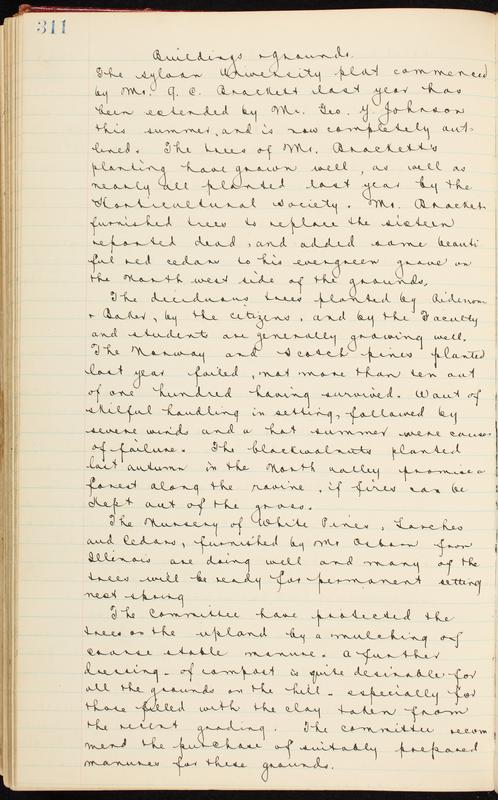 311
Buildings & grounds.
The sylvan University plat commenced
by Mr. G. C. Brackett last year has
been extended by Mr. Geo. Y Johnson
this summer, and is now completely out-
lined. The trees of Mr. Brackett's
planting have grown well, as well as
nearly all planted last year by the
Horticultural Society. Mr. Bracket
furnished trees to replace the sixteen
reported dead, and added some beauti
ful red cedars to his evergreen grove on
the North west side of the grounds.
The deciduous trees planted by
& Baker, by the citizens, and by the Faculty
and students are generally growing well.
The Norway and Scotch pines planted
last year failed, not more than ten out
of one hundred having survived. Want of
skilful handling in setting, followed by
severe winds and a hot summer were cause
of failure. The blackwalnuts planted
last autumn in the North valley promise a
forest along the ravine, if fires can be
kept out of the grass.
The Nursery of White Pines, Larches
and Cedars, furnished by Mr Osborn from
Illinois are doing well and many of the
trees will be ready for permanent setting
next spring
The Committee have protected the
trees on the upland by a mulching of
coarse stable manure. A further
dressing - of compost is quite desirable for
all the grounds on the hill - especially for
those filled with the clay taken from
the recent grading. The committee recom
mend the purchase of suitably prepared
manures for these grounds.